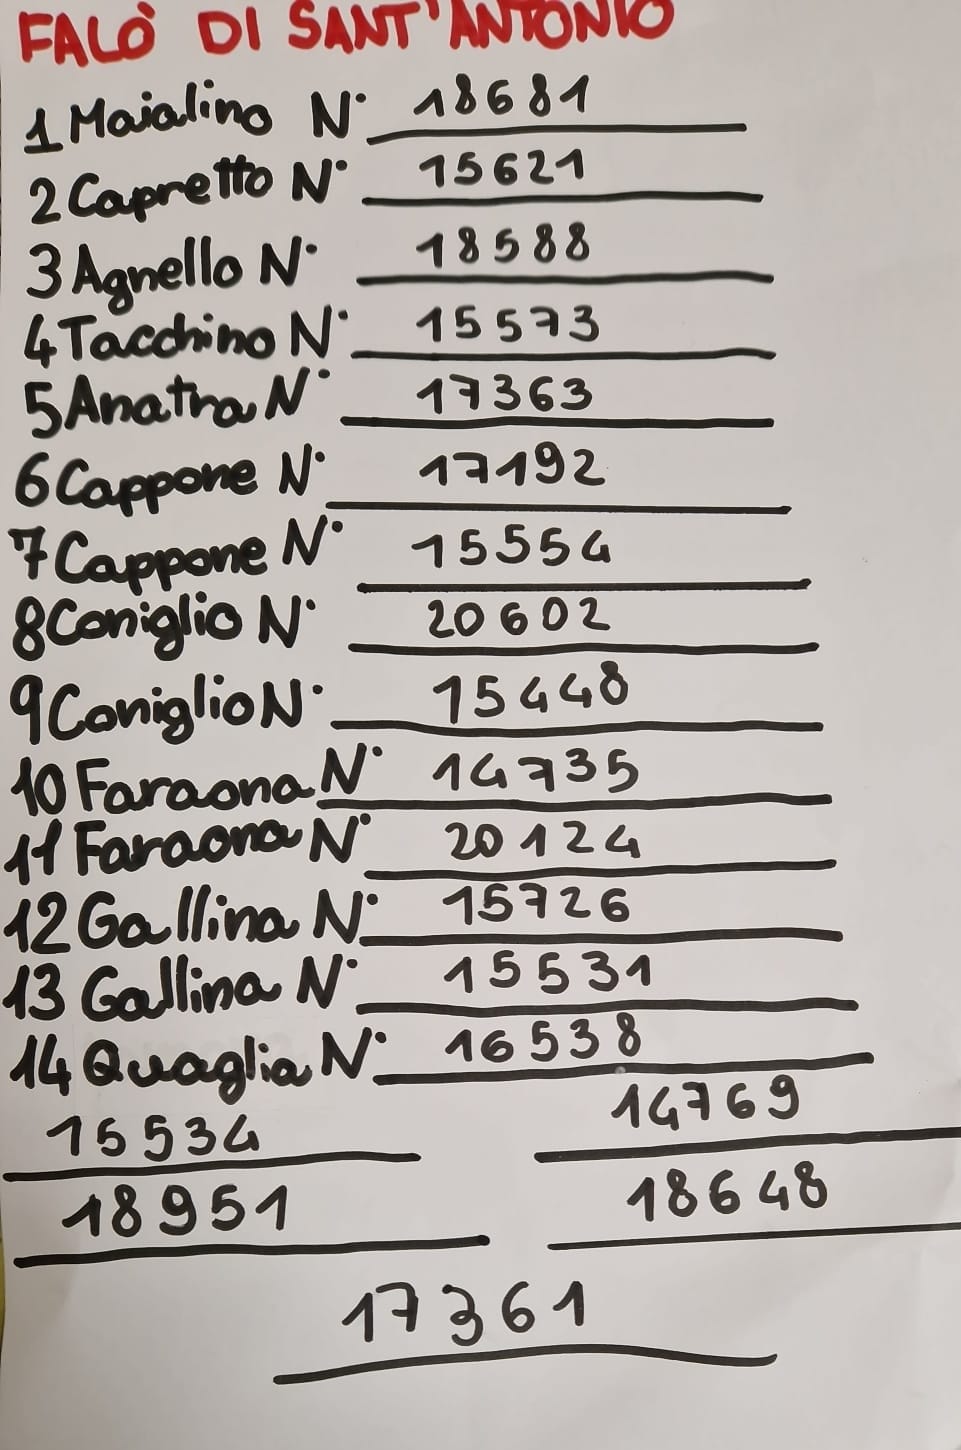 FALÒ DI SANT'ANTONIO
1 Maialino N° 18681
2 Capretto N° 15621
3 Agnello N° 18588
4 Tacchino N° 15573
5 Anatra N° 17363
6 Cappone N° 17192
7 Cappone N° 15554
8 Coniglio N° 20602
9 Coniglio N° 15448
10 Faraona N° 14735
11 Faraona N° 20124
12 Gallina N° 15726
13 Gallina N° 15531
14 Quaglia N° 16538
15534 14769
18951 18648
17361